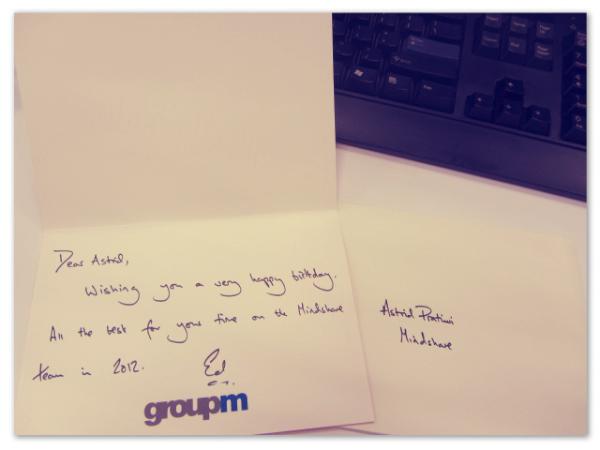 Dear Astrid,
Wishing you a very happy birthday.
All the best for your time on the Mindshare
team in 2012.
Ed
groupm
Astrid Pratiwi
Mindshare